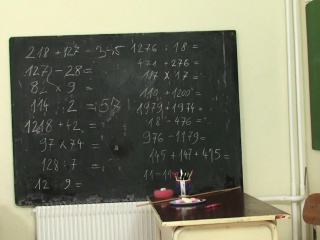 218 + 127 = 345
127 - 28 =
82 × 9 =
114 : 2 = 57
1218 + 42 =
97 × 74 =
128 : 7 =
12 - 9 =
1276 : 18 =
471 + 276 =
117 × 17 =
119 + 1200 =
1979 + 1974 =
18 - 476 =
976 - 1179 =
145 + 147 + 415 =
11 - 11